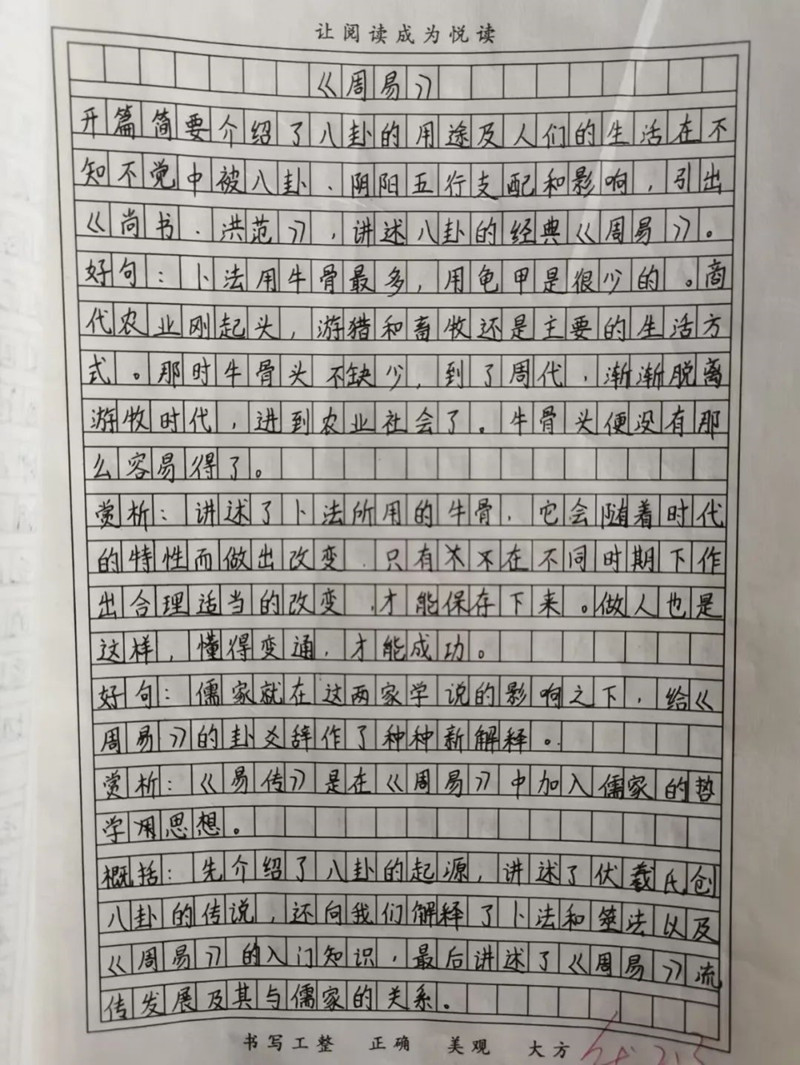 让阅读成为悦读
《周易》
开篇简要介绍了八卦的用途及人们的生活在不
知不觉中被八卦、阴阳五行支配和影响，引出
《尚书·洪范》，讲述八卦的经典《周易》。
好句：卜法用牛骨最多，用龟甲是很少的。商
代农业刚起头，游猎和畜牧还是主要的生活方
式。那时牛骨头不缺少，到了周代，渐渐脱离
游牧时代，进到农业社会了。牛骨头便没有那
么容易得了。
赏析：讲述了卜法所用的牛骨，它会随着时代
的特性而做出改变，只有不在不同时期下作
出合理适当的改变，才能保存下来。做人也是
这样，懂得变通，才能成功。
好句：儒家就在这两家学说的影响之下，给《
周易》的卦爻辞作了种种新解释。
赏析：《易传》是在《周易》中加入儒家的哲
学用思想。
概括：先介绍了八卦的起源，讲述了伏羲氏创
八卦的传说，还向我们解释了卜法和筮法以及
《周易》的入门知识，最后讲述了《周易》流
传发展及其与儒家的关系。
书写工整 正确 美观 大方